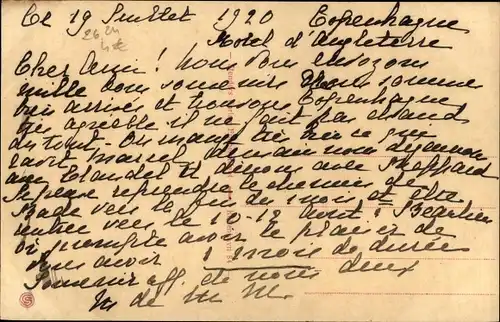 Ce 19 Juillet 1920 Copenhague
26.24
4€
Hotel d'Angleterre
Cher Ami! Nous Vous envoyons
mille bons souvenirs Nous sommes
bien arrivés et trouvons Copenhague
très agréable il ne fait pas chaud
du tout. On mange très bien ce que
ravit Marcel, demain nous déjeunons
aux et dinons avec Sheppard
Je pense reprendre le chemin de
vers le fin du mois et être
rentrée vers le 10-12 août!
avoir le plaisir de
vous avoir
Souvenir aff. de nous deux
M de M.